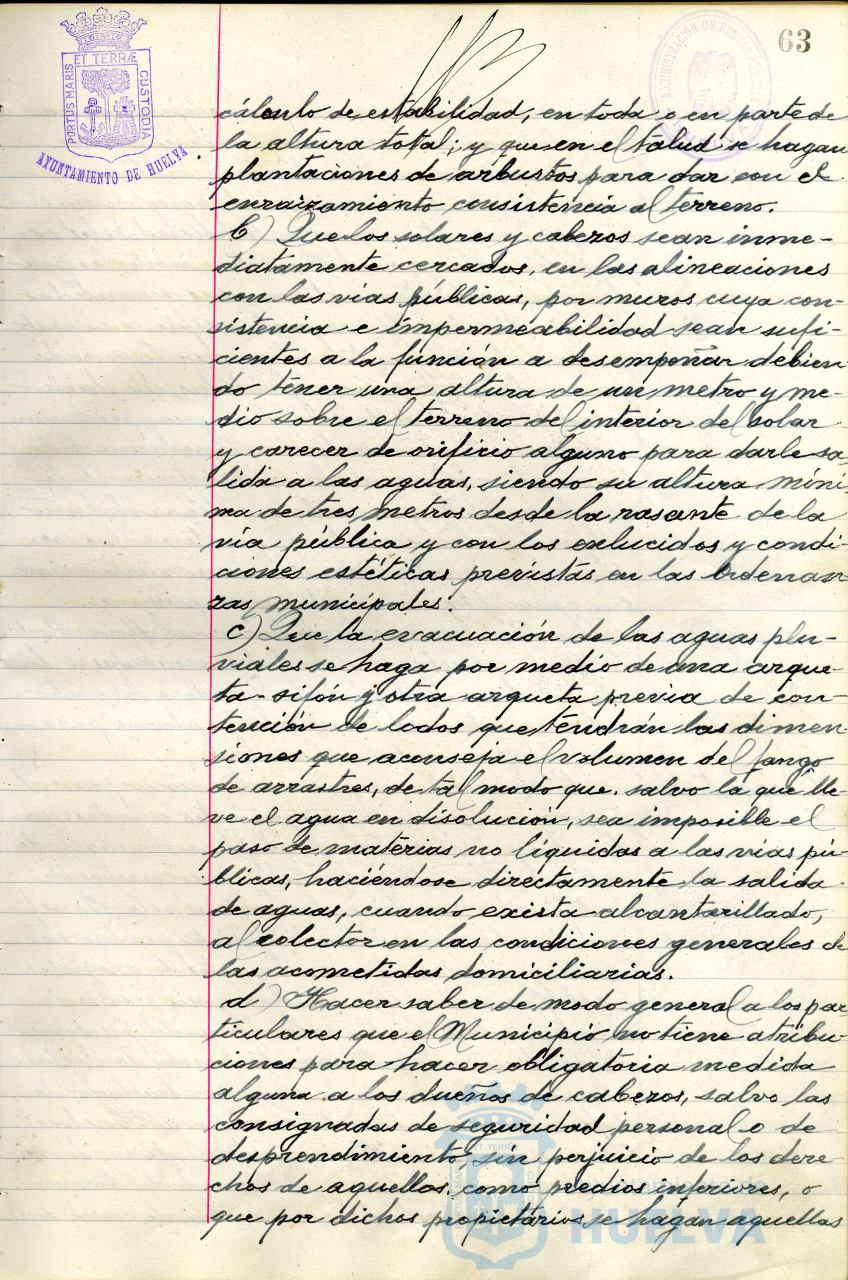 63
ET TERRÆ
PORTUS MARIS
CUSTODIA
AYUNTAMIENTO DE HUELVA
cálculo de estabilidad, en toda o en parte de
la altura total; y que en el talud se hagan
plantaciones de arbustos para dar con el
enraizamiento consistencia al terreno.
b) Que los solares y cabezos sean inme-
diatamente cercados, en las alineaciones
con las vías públicas, por muros cuya con-
sistencia e impermeabilidad sean sufi-
cientes a la función a desempeñar debien-
do tener una altura de un metro y me-
dio sobre el terreno del interior del solar
y carecer de orificio alguno para darle sa-
lida a las aguas, siendo su altura míni-
ma de tres metros desde la rasante de la
vía pública y con los enlucidos y condi-
ciones estéticas previstas en las Ordenan-
zas municipales.
c) Que la evacuación de las aguas plu-
viales se haga por medio de una arque-
ta-sifón y otra arqueta previa de con-
tención de lodos que tendrán las dimen-
siones que aconseja el volumen del fango
de arrastres, de tal modo que, salvo la que lle-
ve el agua en disolución, sea imposible el
paso de materias no líquidas a las vías pú-
blicas, haciéndose directamente la salida
de aguas, cuando exista alcantarillado,
al colector en las condiciones generales de
las acometidas domiciliarias.
d) Hacer saber de modo general a los par-
ticulares que el Municipio no tiene atribu-
ciones para hacer obligatoria medida
alguna a los dueños de cabezos, salvo las
consignadas de seguridad personal o de
desprendimiento sin perjuicio de los dere-
chos de aquellos, como predios inferiores, o
que por dichos propietarios se hagan aquellas
HUELVA